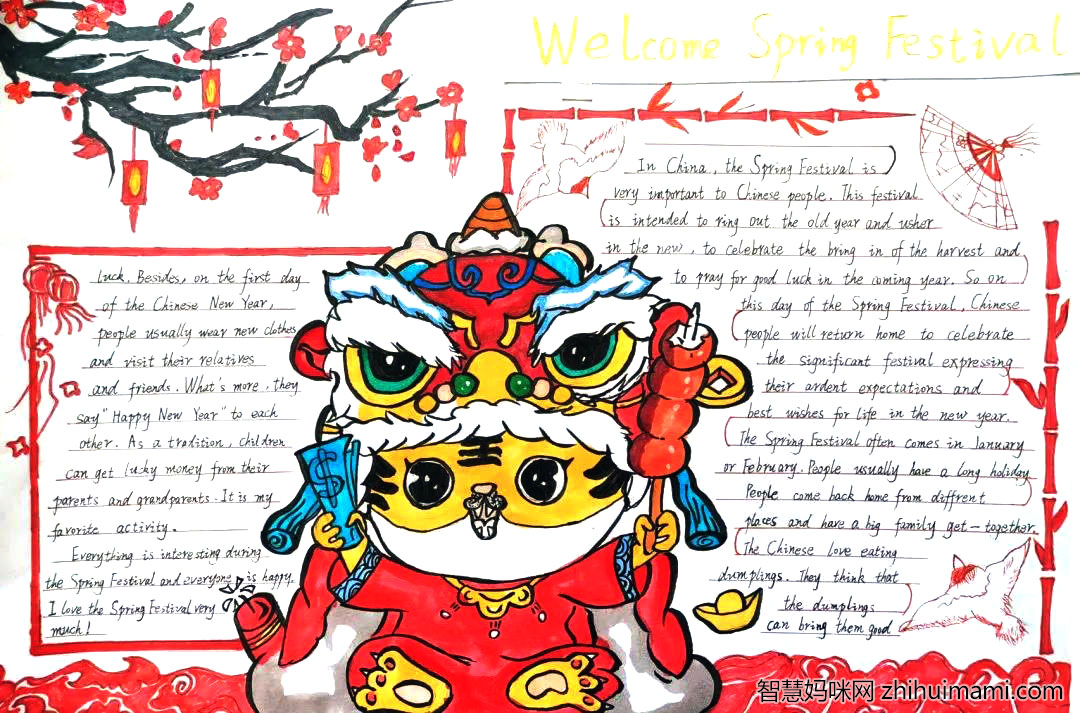 Welcome Spring Festival
In China, the Spring Festival is
very important to Chinese people. This festival
is intended to ring out the old year and usher
in the new, to celebrate the bring in of the harvest and
to pray for good luck in the coming year. So on
this day of the Spring Festival, Chinese
people will return home to celebrate
the significant festival expressing
their ardent expectations and
best wishes for life in the new year.
The Spring Festival often comes in January
or February. People usually have a long holiday
People come back home from diffrent
places and have a big family get-together.
The Chinese love eating
dumplings. They think that
the dumplings
can bring them good
luck. Besides, on the first day
of the Chinese New Year,
people usually wear new clothes
and visit their relatives
and friends. What's more, they
say "Happy New Year" to each
other. As a tradition, children
can get lucky money from their
parents and grandparents. It is my
favorite activity.
Everything is interesting during
the Spring Festival and everyone is happy.
I love the Spring Festival very
much!
王
$
智慧妈咪网 zhihuimami.com